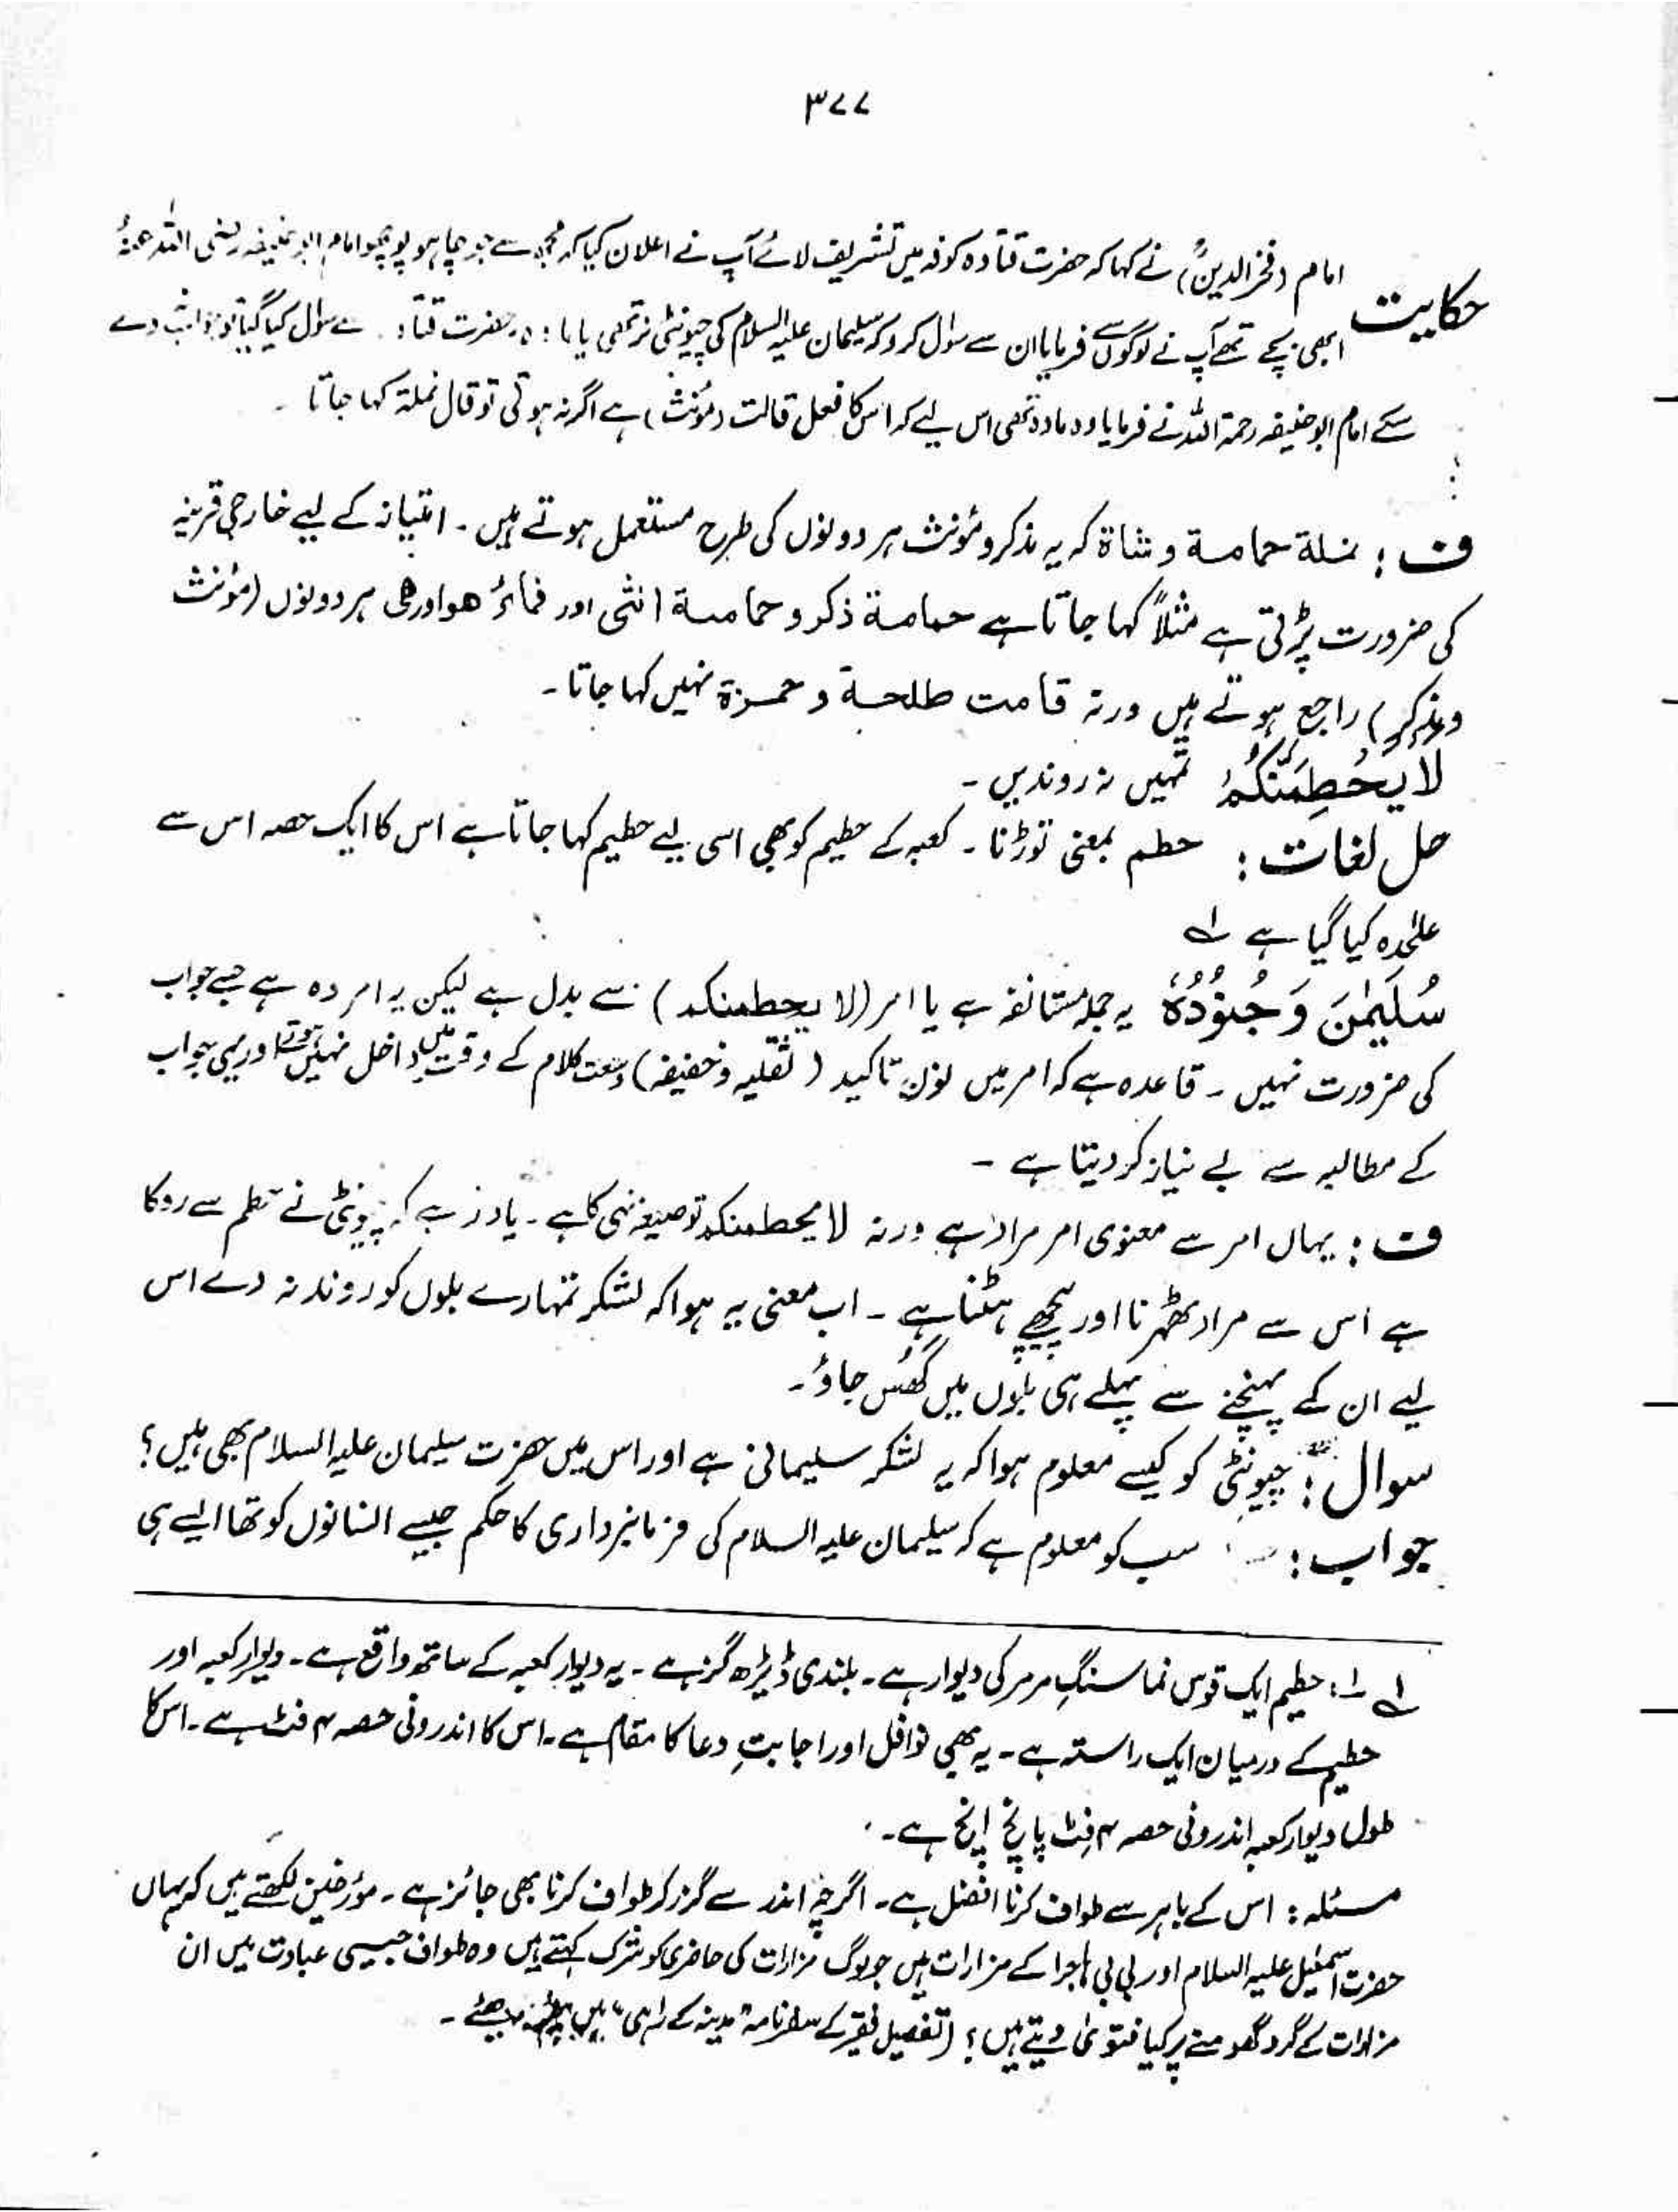 ۳۷۷
حکایت امام (فخرالدینؒ) نے کہا کہ حضرت قتادہ کوفہ میں تشریف لائے آپ نے اعلان کیا کہ مجھ سے جو چاہو پوچھو امام ابوحنیفہ رضی اللہ عنہٗ
ابھی بچے تھے آپ نے لوگوں سے فرمایا ان سے سوال کرو کہ سلیمان علیہ السلام کی چیونٹی نر تھی یا مادہ حضرت قتادہ سے سوال کیا گیا تو جواب نہ دے
سکے امام ابوحنیفہ رحمۃ اللہ نے فرمایا وہ مادہ تھی اس لیے کہ اس کا فعل قالت (مؤنث) ہے اگر نر ہوتی تو قال نملۃ کہا جاتا ۔
ف : نملة حمامة و شاة کہ یہ مذکر و مؤنث ہر دونوں کی طرح مستعمل ہوتے ہیں ۔ امتیاز کے لیے خارجی قرینہ
کی ضرورت پڑتی ہے مثلاً کہا جاتا ہے حمامة ذكر و حمامة انثى اور ضمائر هو اور هى ہر دونوں (مؤنث
و مذکر) راجع ہوتے ہیں ورنہ قامت طلحة و حمزة نہیں کہا جاتا ۔
لَا يَحْطِمَنَّكُمْ تمہیں نہ روندیں ۔
حل لغات : حطم بمعنی توڑنا ۔ کعبہ کے حطیم کو بھی اسی لیے حطیم کہا جاتا ہے اس کا ایک حصہ اس سے
علٰحدہ کیا گیا ہے لہ
سُلَيْمٰنُ وَ جُنُوْدُهٗ یہ جملہ مستانفہ ہے یا امر (لا يحطمنكم) سے بدل ہے لیکن یہ امر وہ ہے جسے جواب
کی ضرورت نہیں ۔ قاعدہ ہے کہ امر میں نون تاکید (ثقلیہ و خفیفہ) وسعت کلام کے وقت میں داخل نہیں ہوتے اور یہی جواب
کے مطالبہ سے بے نیاز کر دیتا ہے ۔
ف : یہاں امر سے معنوی امر مراد ہے ورنہ لا يحطمنكم تو صیغہ نہی کا ہے ۔ یاد رہے کہ چیونٹی نے حطم سے روکا
ہے اس سے مراد ٹھہرنا اور پیچھے ہٹنا ہے ۔ اب معنی یہ ہوا کہ لشکر تمہارے بلوں کو روند نہ دے اس
لیے ان کے پہنچنے سے پہلے ہی بلوں میں گھُس جاؤ ۔
سوال : چیونٹی کو کیسے معلوم ہوا کہ یہ لشکر سلیمانی ہے اور اس میں حضرت سلیمان علیہ السلام بھی ہیں ؟
جواب : سب کو معلوم ہے کہ سلیمان علیہ السلام کی فرمانبرداری کا حکم جیسے انسانوں کو تھا ایسے ہی
لہ : حطیم ایک قوس نما سنگِ مرمر کی دیوار ہے ۔ بلندی ڈیڑھ گز ہے ۔ یہ دیوار کعبہ کے ساتھ واقع ہے ۔ دیوار کعبہ اور
حطیم کے درمیان ایک راستہ ہے ۔ یہ بھی نوافل اور اجابتِ دعا کا مقام ہے ۔ اس کا اندرونی حصہ ۴ فٹ ہے ۔ اس کا
طول دیوار کعبہ اندرونی حصہ ۴ فٹ پانچ انچ ہے ۔
مسئلہ : اس کے باہر سے طواف کرنا افضل ہے ۔ اگرچہ اندر سے گزر کر طواف کرنا بھی جائز ہے ۔ مؤرخین لکھتے ہیں کہ یہاں
حضرت اسمٰعیل علیہ السلام اور بی بی ہاجرا کے مزارات ہیں جو لوگ مزارات کی حاضری کو شرک کہتے ہیں وہ طواف جیسی عبادت میں ان
مزارات کے گرد گھومنے پر کیا فتویٰ دیتے ہیں ؟ (تفصیل فقیر کے سفرنامہ "مدینہ کے راہی" میں